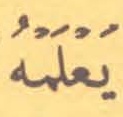 يَعْلَمُهُ